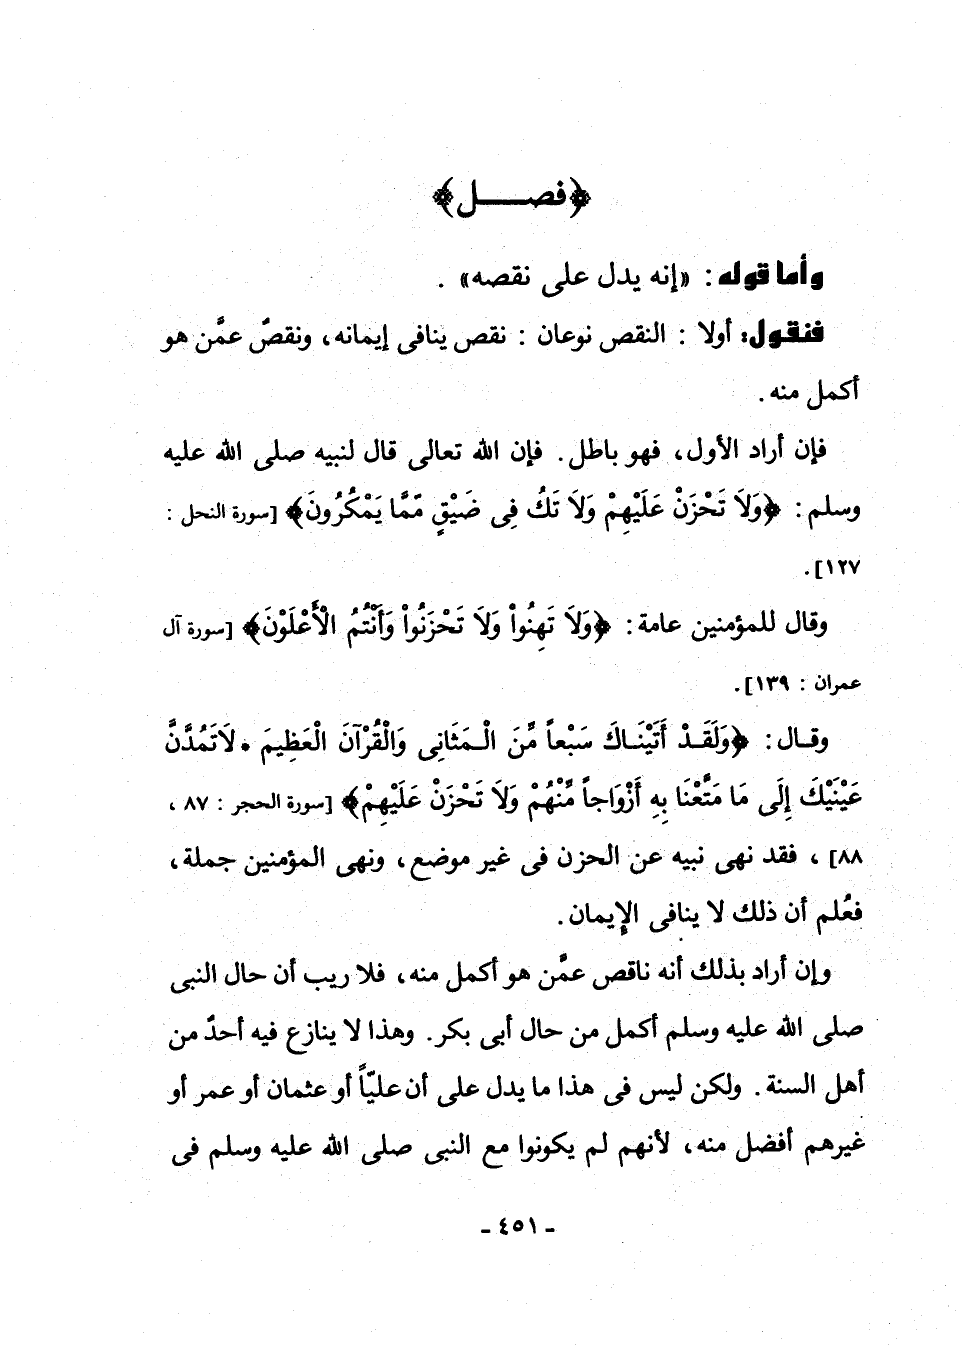 ﴿فصــــل﴾
وأما قوله : «إنه يدل على نقصه» .
فنقول: أولا : النقص نوعان : نقص ينافى إيمانه، ونقصٌ عمَّن هو
أكمل منه .
فإن أراد الأول، فهو باطل. فإن الله تعالى قال لنبيه صلى الله عليه
وسلم : ﴿وَلاَ تَحْزَنْ عَلَيْهِمْ وَلاَ تَكُ فِى ضَيْقٍ مِّمَّا يَمْكُرُونَ﴾ [سورة النحل :
١٢٧] .
وقال للمؤمنين عامة : ﴿وَلاَ تَهِنُواْ وَلاَ تَحْزَنُواْ وَأَنْتُمُ الْأَعْلَوْنَ﴾ [سورة آل
عمران : ١٣٩] .
وقـال : ﴿وَلَقَـدْ أَتَيْنَـاكَ سَبْعاً مِّنَ الْـمَثَانِى وَالْقُرْآنَ الْعَظِيمَ • لاَتَمُدَّنَّ
عَيْنَيْكَ إِلَى مَا مَتَّعْنَا بِهِ أَزْوَاجاً مِّنْهُمْ وَلاَ تَحْزَنْ عَلَيْهِمْ﴾ [سورة الحجر : ٨٧ ،
٨٨] ، فقد نهى نبيه عن الحزن فى غير موضع، ونهى المؤمنين جملة،
فعُلم أن ذلك لا ينافى الإيمان.
وإن أراد بذلك أنه ناقص عمَّن هو أكمل منه، فلا ريب أن حال النبى
صلى الله عليه وسلم أكمل من حال أبى بكر. وهذا لا ينازع فيه أحدٌ من
أهل السنة . ولكن ليس فى هذا ما يدل على أن عليّاً أو عثمان أو عمر أو
غيرهم أفضل منه، لأنهم لم يكونوا مع النبى صلى الله عليه وسلم فى
ـ ٤٥١ ـ